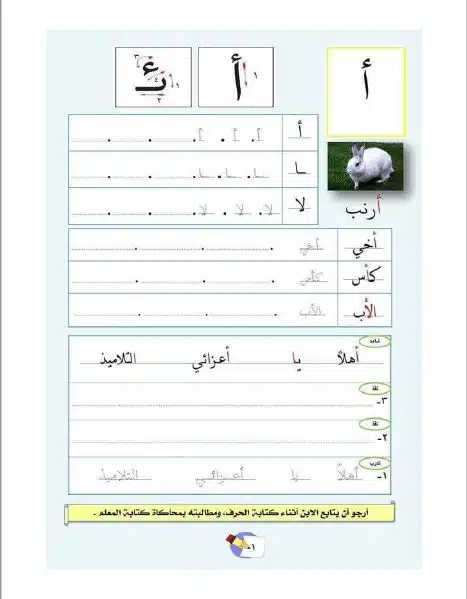 أ
أ ١
ئ ١ ٢ ٣ ٤
أرنب
أ أ. أ. أ.
ـا ـا. ـا. ـا.
لا لا. لا. لا.
أخي أخي
كأس كأس
الأب الأب
شاهد
أهلاً يا أعزائي التلاميذ
نفذ
٣-
نفذ
٢-
تدرب
١- أهلاً يا أعزائي التلاميذ
أرجو أن يتابع الابن أثناء كتابة الحرف، ومطالبته بمحاكاة كتابة المعلم .
١-